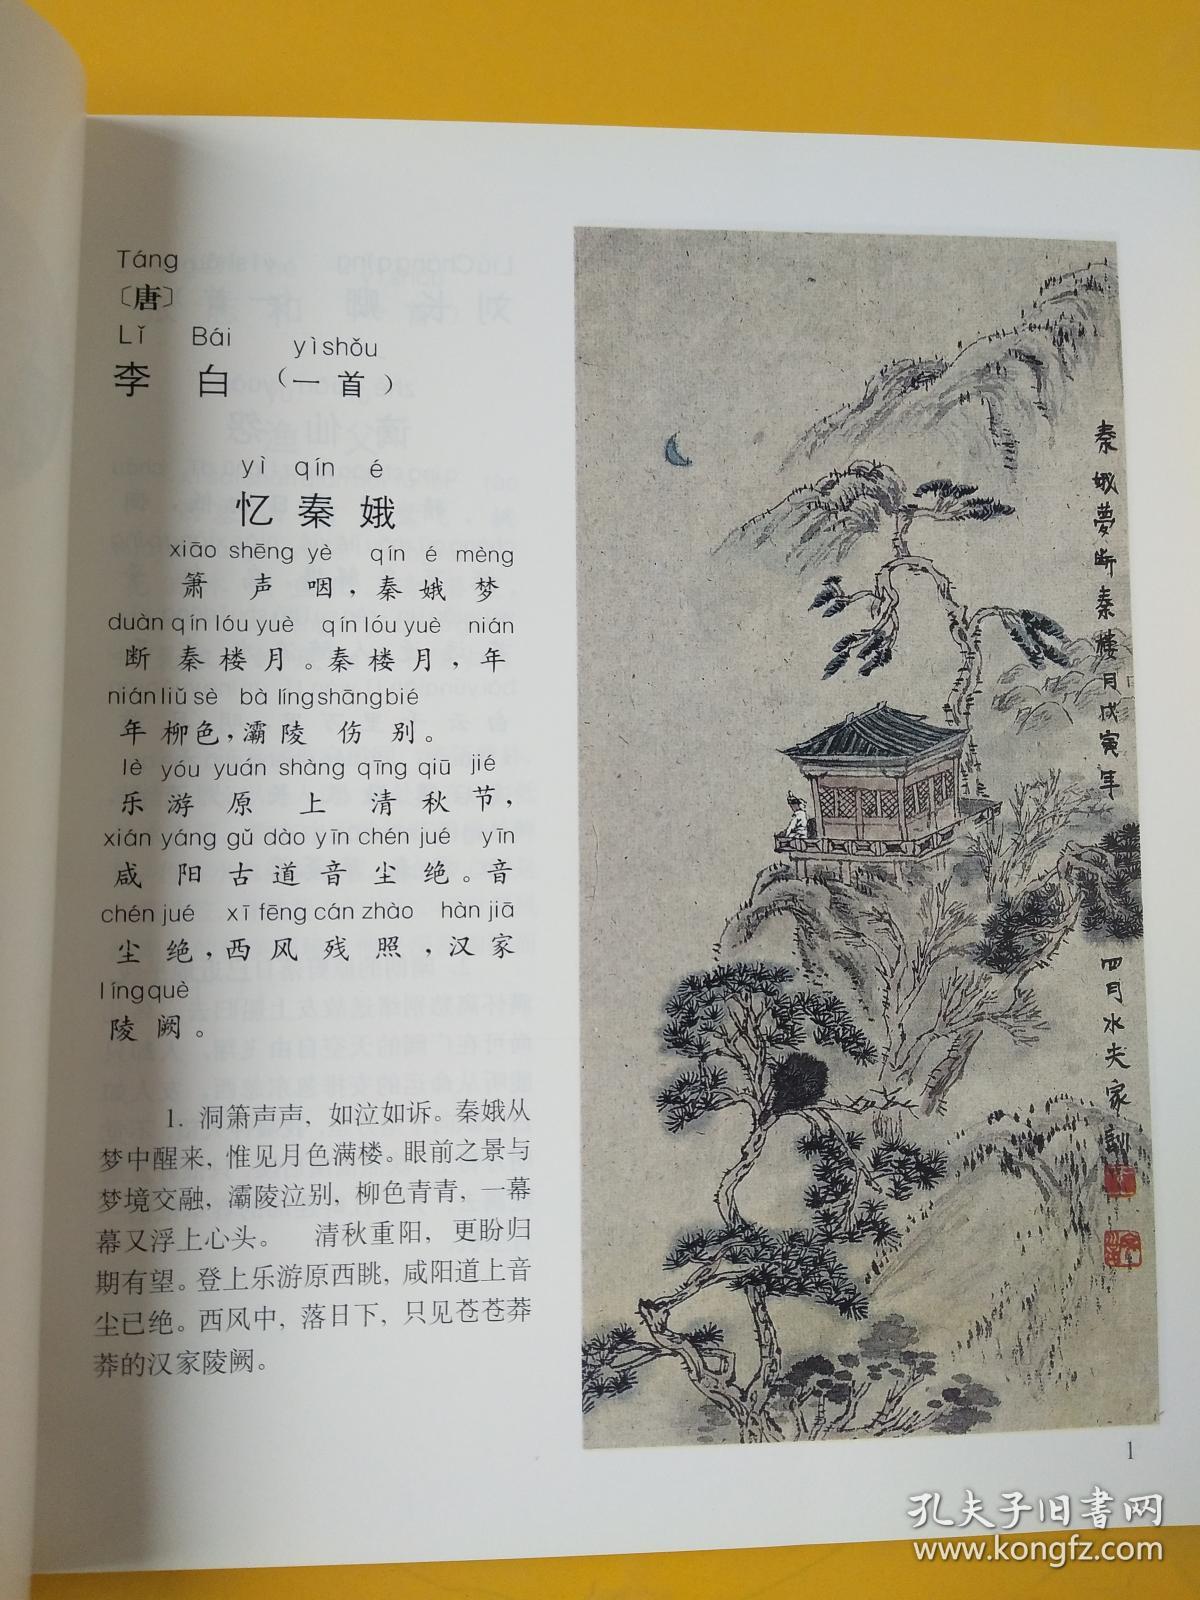 Táng
〔唐〕
Lǐ Bái yìshǒu
李 白 （一首）
yì qín é
忆秦娥
xiāo shēng yè qín é mèng
箫声咽，秦娥梦
duàn qín lóu yuè qín lóu yuè nián
断秦楼月。秦楼月，年
nián liǔ sè bà líng shāng bié
年柳色，灞陵伤别。
lè yóu yuán shàng qīng qiū jié
乐游原上清秋节，
xián yáng gǔ dào yīn chén jué yīn
咸阳古道音尘绝。音
chén jué xī fēng cán zhào hàn jiā
尘绝，西风残照，汉家
líng què
陵阙。
1. 洞箫声声，如泣如诉。秦娥从
梦中醒来，惟见月色满楼。眼前之景与
梦境交融，灞陵泣别，柳色青青，一幕
幕又浮上心头。 清秋重阳，更盼归
期有望。登上乐游原西眺，咸阳道上音
尘已绝。西风中，落日下，只见苍苍莽
莽的汉家陵阙。
秦娥夢断秦樓月戊寅年四月水夫家訓
1
孔夫子旧书网
www.kongfz.com